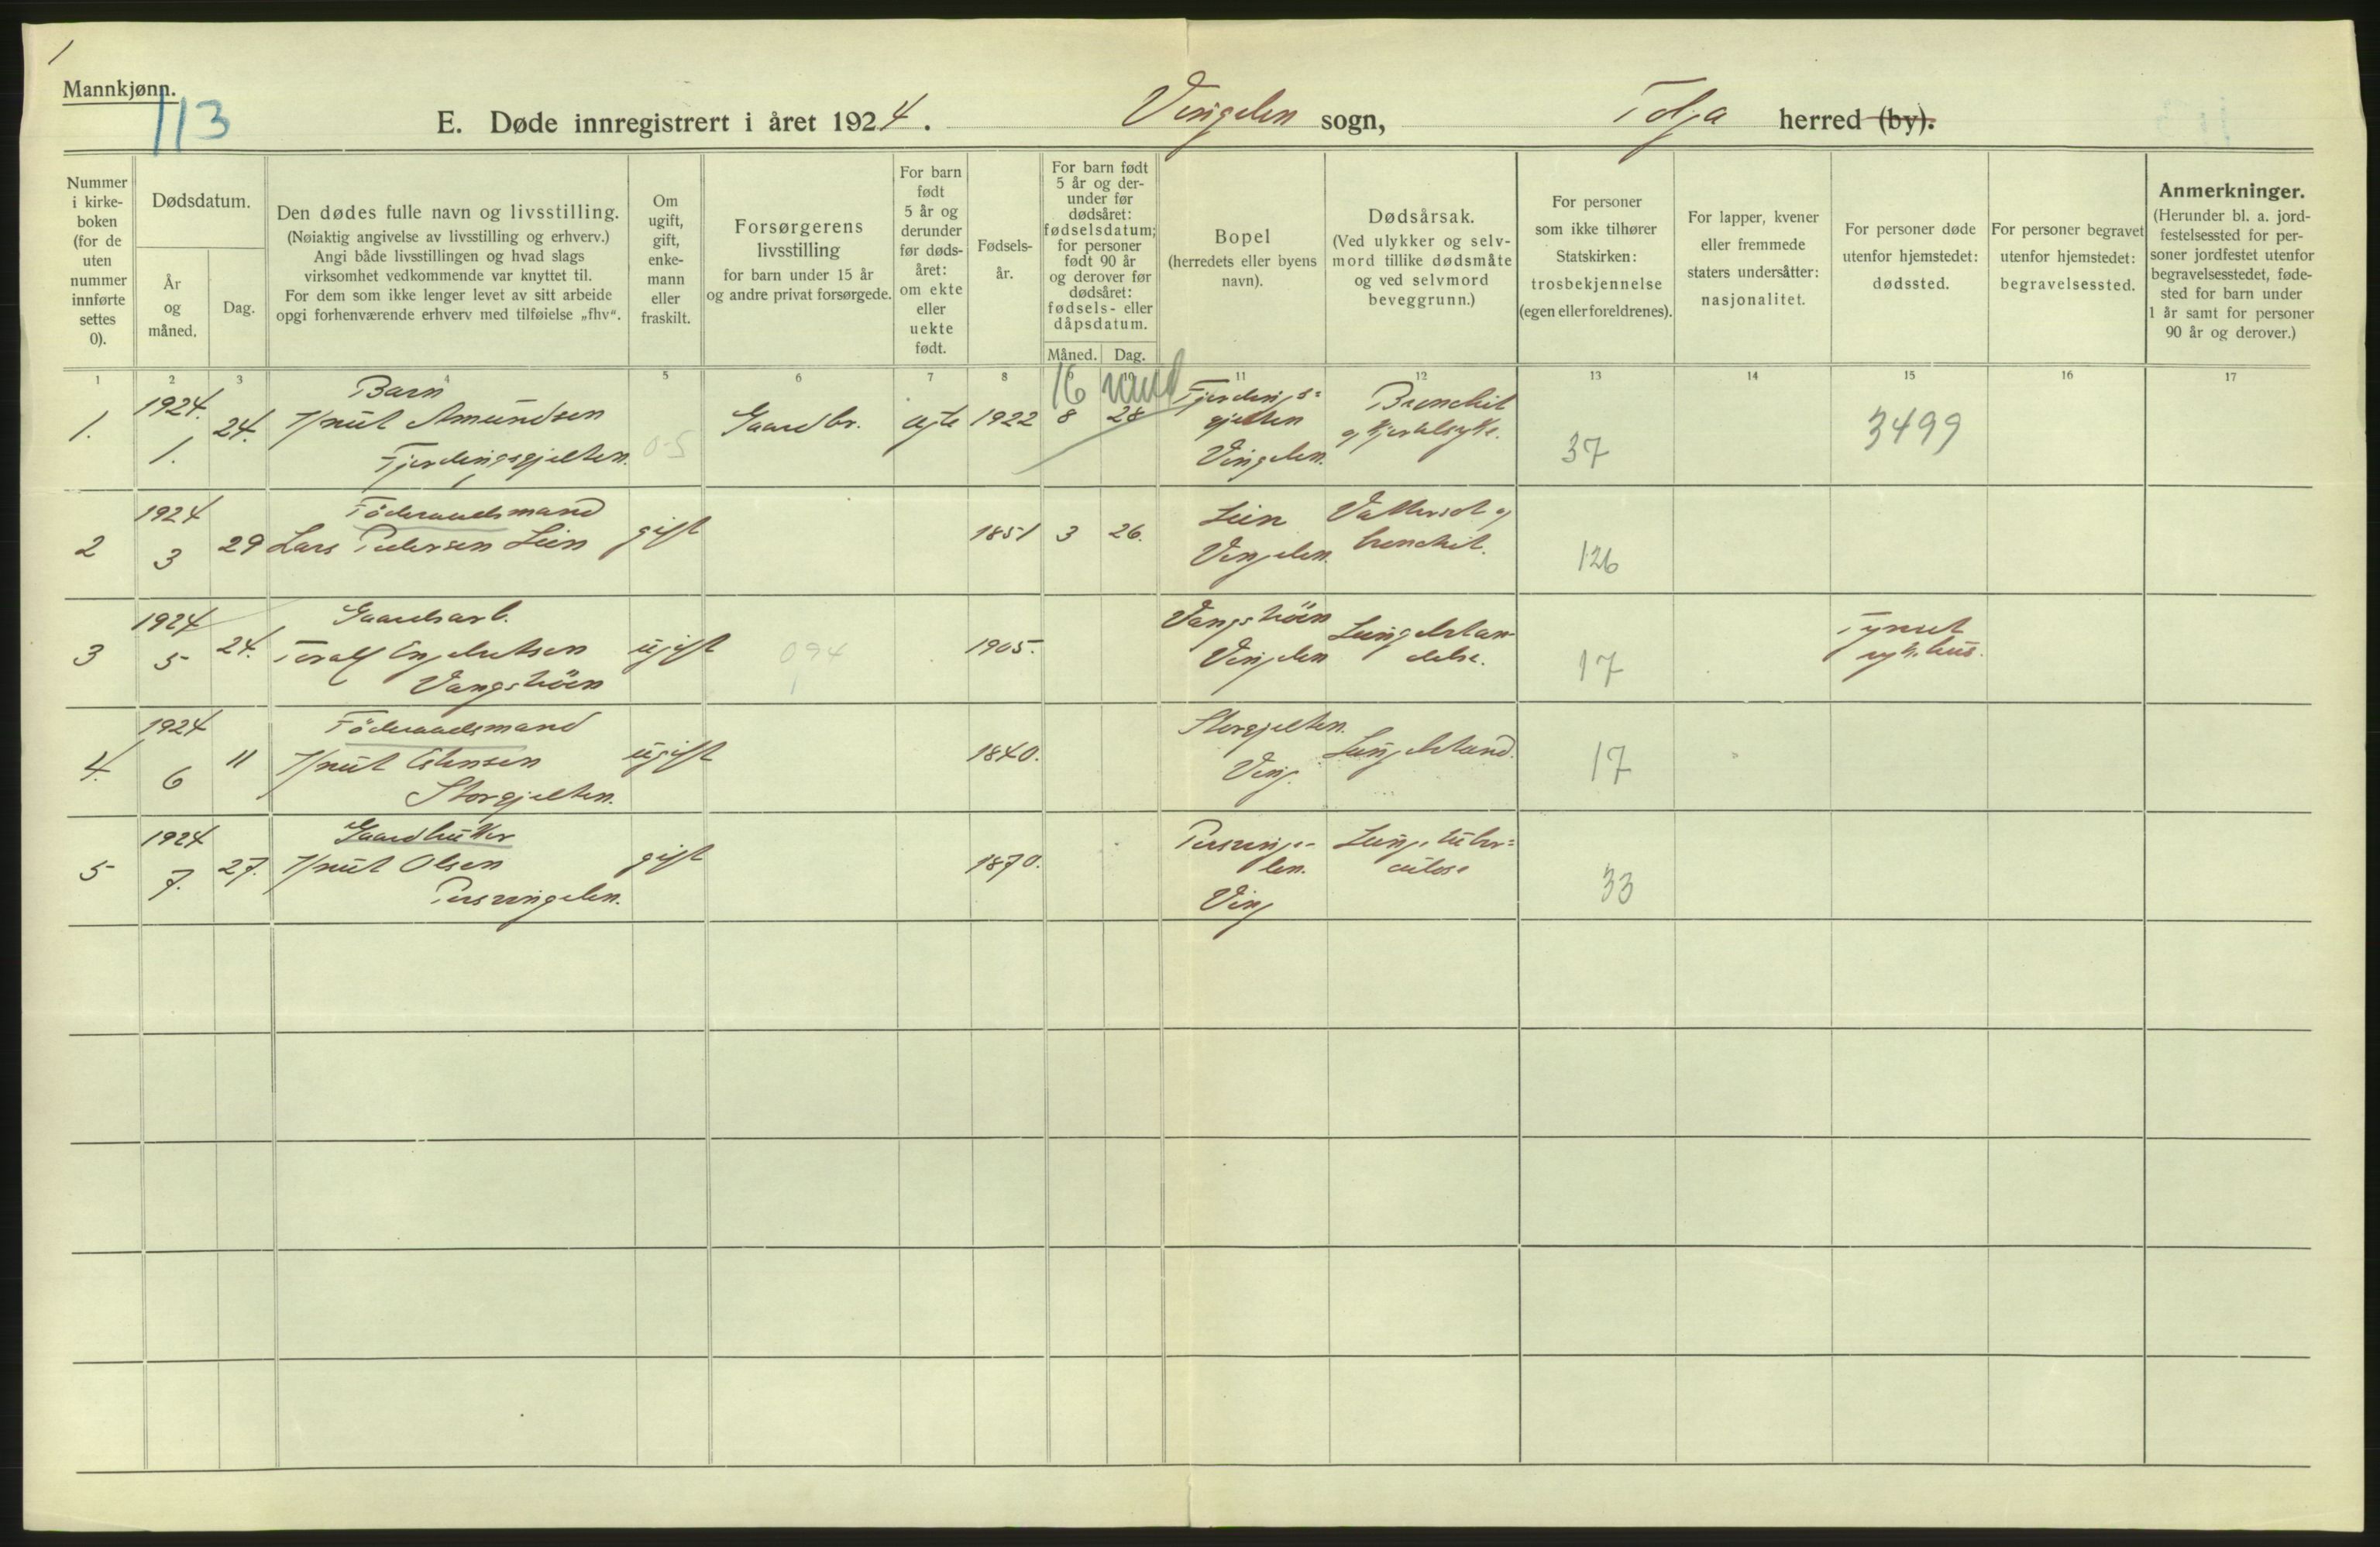 1
Mannkjønn.
113
E. Døde innregistrert i året 1924. Vingelen sogn, Tolga herred (by).
Nummer i kirkeboken (for de uten nummer innførte settes 0).
Dødsdatum.
År og måned.
Dag.
Den dødes fulle navn og livsstilling.
(Nøiaktig angivelse av livsstilling og erhverv.)
Angi både livsstillingen og hvad slags
virksomhet vedkommende var knyttet til.
For dem som ikke lenger levet av sitt arbeide
opgi forhenværende erhverv med tilføielse „fhv“.
Om ugift, gift, enkemann eller fraskilt.
Forsørgerens
livsstilling
for barn under 15 år
og andre privat forsørgede.
For barn født 5 år og derunder før dødsåret: om ekte eller uekte født.
Fødselsår.
For barn født 5 år og derunder før dødsåret: fødselsdatum; for personer født 90 år og derover før dødsåret: fødsels- eller dåpsdatum.
Måned. Dag.
Bopel
(herredets eller byens
navn).
Dødsårsak.
(Ved ulykker og selvmord tillike dødsmåte
og ved selvmord
beveggrunn.)
For personer
som ikke tilhører
Statskirken:
trosbekjennelse
(egen eller foreldrenes).
For lapper, kvener
eller fremmede
staters undersåtter:
nasjonalitet.
For personer døde
utenfor hjemstedet:
dødssted.
For personer begravet
utenfor hjemstedet:
begravelsessted.
Anmerkninger.
(Herunder bl. a. jordfestelsessted for personer jordfestet utenfor
begravelsesstedet, fødested for barn under
1 år samt for personer
90 år og derover.)
1 2 3 4 5 6 7 8 9 10 11 12 13 14 15 16 17
1. 1924. 1. 24. Barn
Knut Amundsen
Fjerdingsgjelten.
0-5
Gaardbr. ægte 1922 8 28
16
Fjerdings-
gjelten
Vingelen.
Bronchit
og Hjertesygd.
37
3499
2 1924 3 29 Föderaadsmand
Lars Pedersen Lien
gift 1851 3 26.
Lien
Vingelen.
Vattersot og
bronchit.
126
3 1924 5 24. Gaardsarb.
Toralf Engebretsen
Vangshöen
ugift 094 1905.
Vangshöen
Vingelen
Lungebetæn-
delse.
17
Tynset
sykehus.
4. 1924 6 11 Föderaadsmand
Knut Estensen
Storgjelten.
ugift 1840.
Storgjelten.
Ving.
Lungebetænd.
17
5 1924 7. 27. Gaardbruker
Knut Olsen
gift 1870.
Ving
Lungetuber=
culose
33